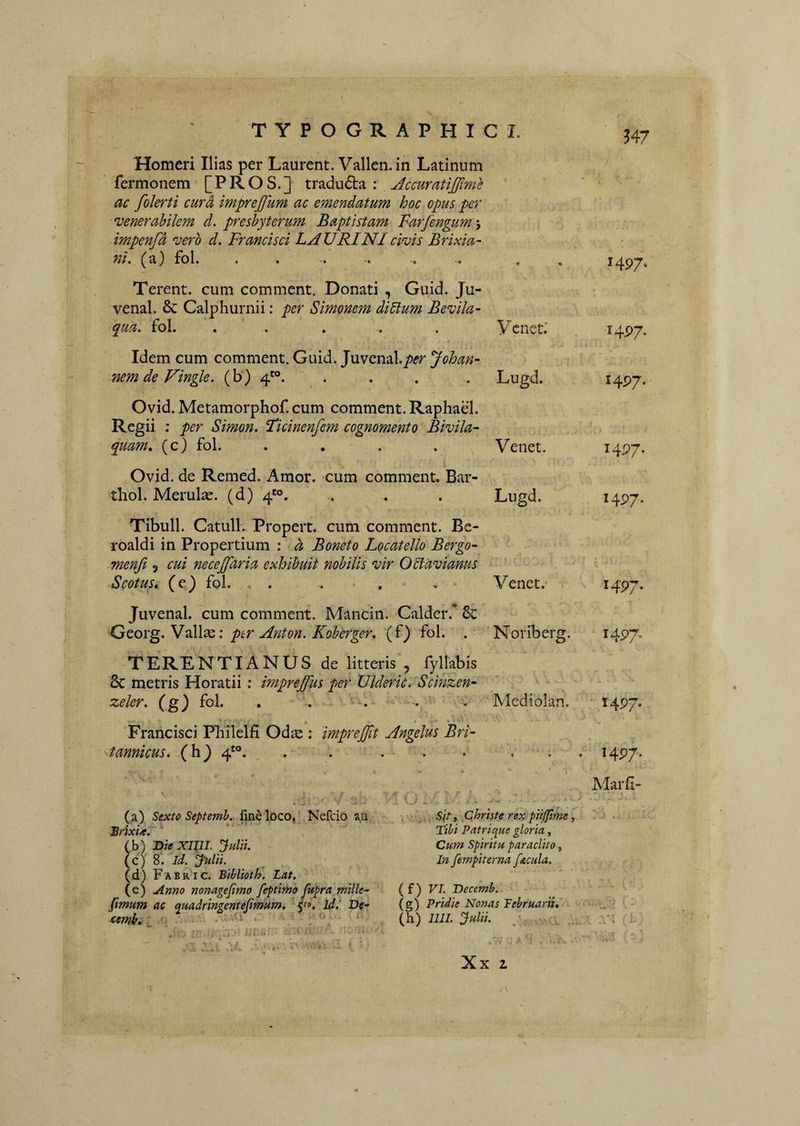 TYPOGRAPHICI. 347
Homeri Ilias per Laurent. Vallen. in Latinum
ſermonem [PROS.] traducta: Accuratiſſimè
ac ſolerti curâ impreſſum ac emendatum hoc opus per
venerabilem d. presbyterum Baptistam Farſengum;
impenſâ verò d. Francisci LAURINI civis Brixia-
ni. (a) fol. . . . . . . . 1497.
Terent. cum comment. Donati, Guid. Ju-
venal. & Calphurnii: per Simonem dictum Bevila-
qua. fol. . . . . . Venet. 1497.
Idem cum comment. Guid. Juvenal. per Johan-
nem de Vingle. (b) 4to. . . . . Lugd. 1497.
Ovid. Metamorphoſ. cum comment. Raphaël.
Regii: per Simon. Ticinenſem cognomento Bivila-
quam. (c) fol. . . . . Venet. 1497.
Ovid. de Remed. Amor. cum comment. Bar-
thol. Merulæ. (d) 4to. . . . Lugd. 1497.
Tibull. Catull. Propert. cum comment. Be-
roaldi in Propertium: à Boneto Locatello Bergo-
menſi, cui neceſſaria exhibuit nobilis vir Octavianus
Scotus. (e) fol. . . . . . Venet. 1497.
Juvenal. cum comment. Mancin. Calder. &
Georg. Vallæ: per Anton. Koberger. (f) fol. . Noriberg. 1497.
TERENTIANUS de litteris, ſyllabis
& metris Horatii: impreſſus per Ulderic. Scinzen-
zeler. (g) fol. . . . . . Mediolan. 1497.
Francisci Philelfi Odæ: impreſſit Angelus Bri-
tannicus. (h) 4to. . . . . . . . . 1497.
Marſi-
(a) Sexto Septemb. ſinè loco, Neſcio an
Brixiæ.
(b) Die XIIII. Julii.
(c) 8. Id. Julii.
(d) FABRIC. Biblioth. Lat.
(e) Anno nonageſimo ſeptimo ſupra mille-
ſimum ac quadringenteſimum. 5to. Id. De-
cemb.
Sit, Christe rex piiſſime,
Tibi Patrique gloria,
Cum Spiritu paraclito,
In ſempiterna ſæcula.
(f) VI. Decemb.
(g) Pridie Nonas Februarii.
(h) IIII. Julii.
Xx 2